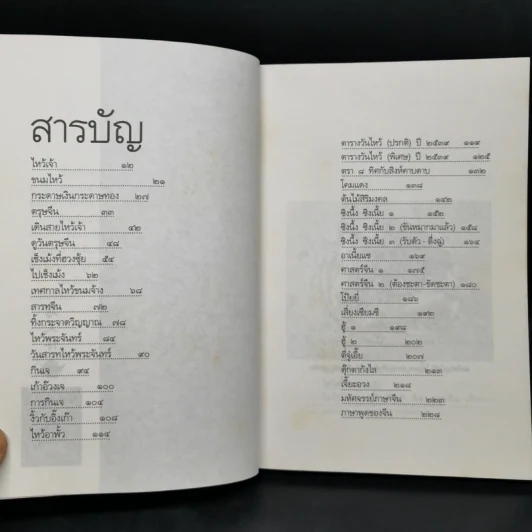 สารบัญ
ไหว้เจ้า ๑๒
ขนมไหว้ ๒๑
กระดาษเงินกระดาษทอง ๒๗
ตรุษจีน ๓๓
เดินสายไหว้เจ้า ๔๒
ดูวันตรุษจีน ๔๘
เช็งเม้งที่ฮวงซุ้ย ๕๔
ไปเช็งเม้ง ๖๒
เทศกาลไหว้ขนมจ้าง ๖๘
สารทจีน ๗๒
ทิ้งกระจาดวิญญาณ ๗๘
ไหว้พระจันทร์ ๘๔
วันสารทไหว้พระจันทร์ ๙๐
กินเจ ๙๔
เก้าอ๊วงเจ ๑๐๐
การกินเจ ๑๐๔
งิ้วกับอึ้งเก๊า ๑๐๘
ไหว้อาพั้ว ๑๑๔
ตารางวันไหว้ (ปรกติ) ปี ๒๕๓๙ ๑๑๙
ตารางวันไหว้ (พิเศษ) ปี ๒๕๓๙ ๑๒๕
ตรา ๘ ทิศกับสิงห์คาบดาบ ๑๓๒
โคมแดง ๑๓๘
ต้นไม้สิริมงคล ๑๔๒
ซิงนี้ ซิงเนี้ย ๑ ๑๕๒
ซิงนี้ ซิงเนี้ย ๒ (ขันหมากมาแล้ว) ๑๕๘
ซิงนี้ ซิงเนี้ย ๓ (รับตัว - ตึ่งฉู่) ๑๖๔
อาเนี้ยแซ ๑๖๙
ศาสตร์จีน ๑ ๑๗๕
ศาสตร์จีน ๒ (ต้องชะตา-ขัดชะตา) ๑๘๐
โป๊ยยี่ ๑๘๖
เสี่ยงเซียมซี ๑๙๒
ฮู้ ๑ ๑๙๘
ฮู้ ๒ ๒๐๒
ตี่จู่เอี๊ย ๒๐๗
ตุ๊กตากังไส ๒๑๓
เจี๊ยะฮวง ๒๑๘
มหัศจรรย์ภาษาจีน ๒๒๓
ภาษาพูดของจีน ๒๒๘